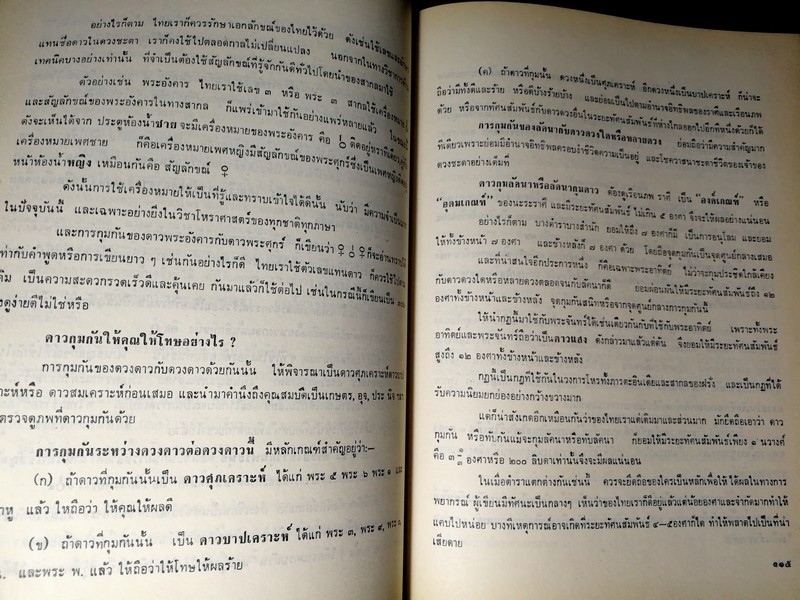 อย่างไรก็ตาม ไทยเราก็ควรรักษาเอกลักษณ์ของไทยไว้ด้วย ดังเช่นใช้เลข
แทนชื่อดาวในดวงชะตา เราก็คงใช้ไปตลอดกาลไม่เปลี่ยนแปลง นอกจากในทางวิชาการด้าน
เทคนิคบางอย่างเท่านั้น ที่จำเป็นต้องใช้สัญลักษณ์ที่รู้จักกันดีทั่วไปโดยนำของสากลมาใช้
ตัวอย่างเช่น พระอังคาร ไทยเราใช้เลข ๓ หรือ พระ ๓ สากลใช้เครื่องหมาย
และสัญลักษณ์ของพระอังคารในทางสากล ก็แพร่เข้ามาใช้กันอย่างแพร่หลายแล้ว
ดังจะเห็นได้จาก ประตูห้องน้ำชาย จะมีเครื่องหมายของพระอังคาร คือ ♂ ติดอยู่
เครื่องหมายเพศชาย ก็คือเครื่องหมายเพศหญิงมีสัญลักษณ์ของพระศุกร์ซึ่งเป็นเพศหญิง
หน้าห้องน้ำหญิง เหมือนกันคือ สัญลักษณ์ ♀
ดังนั้นการใช้เครื่องหมายให้เป็นที่รู้และทราบเข้าใจได้ดีนั้น นับว่า มีความจำเป็นมาก
ในปัจจุบันนี้ และเฉพาะอย่างยิ่งในวิชาโหราศาสตร์ของทุกชาติทุกภาษา
และการกุมกันของดาวพระอังคารกับดาวพระศุกร์ ก็เขียนว่า ♀ ☌ ♂ ก็จะอ่าน
ท่ากับคำพูดหรือการเขียนยาว ๆ เช่นกันอย่างไรก็ดี ไทยเราใช้ตัวเลขแทนดาว ก็ควรใช้ไป
ดิม เป็นความสะดวกรวดเร็วดีและคุ้นเคย กันมาแล้วก็ใช้ต่อไป เช่นในกรณีนี้ก็เขียนเป็น
ดูง่ายดีไม่ใช่หรือ
ดาวกุมกันให้คุณให้โทษอย่างไร ?
การกุมกันของดวงดาวกับดวงดาวด้วยกันนั้น ให้พิจารณาเป็นดาวศุภเคราะห์
าะห์หรือ ดาวสมเคราะห์ก่อนเสมอ และนำมาคำนึงถึงคุณสมบัติเป็นเกษตร, อุจ, ประ นิจ
ตรวจดูภพที่ดาวกุมกันด้วย
การกุมกันระหว่างดวงดาวต่อดวงดาวนี้ มีหลักเกณฑ์สำคัญอยู่ว่า:-
(ก) ถ้าดาวที่กุมกันนั้นเป็น ดาวศุภเคราะห์ ได้แก่ พระ ๕ พระ ๖ พระ ๑ และ
าหู แล้ว ให้ถือว่า ให้คุณให้ผลดี
(ข) ถ้าดาวที่กุมกันนั้น เป็น ดาวบาปเคราะห์ ได้แก่ พระ ๓, พระ ๙, พระ
และพระ พ. แล้ว ให้ถือว่าให้โทษให้ผลร้าย
(ค) ถ้าดาวที่กุมนั้น ดวงหนึ่งเป็นศุภเคราะห์ อีกดวงหนึ่งเป็นบาปเคราะห์ ก็น่าจะ
ถือว่ามีทั้งดีและร้าย หรือดีบ้างร้ายบ้าง และย่อมเป็นไปตามอำนาจอิทธิพลของราศีและเรือนภพ
ด้วย หรือจากทัศนสัมพันธ์กับดาวดวงอื่นในระยะทัศนสัมพันธ์ที่ห่างไกลออกไปอีกที่หนึ่งด้วยก็ได้
การกุมกันของลัคนากับดาวดวงใดหรือหลายดวง ย่อมถือว่ามีความสำคัญมาก
ทีเดียวเพราะย่อมมีอำนาจอิทธิพลครอบงำชีวิตความเป็นอยู่ และโชควาสนาชะตาชีวิตของเจ้าของ
ดวงชะตาอย่างเต็มที่
ดาวกุมลัคนาหรือลัคนากุมดาว ต้องดูเรือนภพ ราศี เป็น “องค์เกณฑ์” หรือ
“อุดมเกณฑ์” ของนะระราศี และมีระยะทัศนสัมพันธ์ ไม่เกิน ๕ องศา จึงจะให้ผลอย่างแน่นอน
อย่างไรก็ตาม บางตำราบางสำนัก ยอมให้ถึง ๗ องศาก็มี เป็นการอนุโลม และยอม
ให้ทั้งข้างหน้า ๗ องศา และข้างหลังก็ ๗ องศา ด้วย โดยถือจุดกุมกันเป็นจุดศูนย์กลางเสมอ
และที่น่าสนใจอีกประการหนึ่ง ก็คือเฉพาะพระอาทิตย์ ไม่ว่าจะกุมประชิดใกล้เคียง
กับดาวดวงใดหรือหลายดวงตลอดจนกับลัคนาก็ดี ย่อมผ่อนผันให้มีระยะทัศนสัมพันธ์ถึง ๑๒
องศาทั้งข้างหน้าและข้างหลัง จุดกุมกันสนิทหรือจากจุดศูนย์กลางการกุมกันนี้
ให้นำกฎนี้มาใช้กับพระจันทร์ได้เช่นเดียวกันกับที่ใช้กับพระอาทิตย์ เพราะทั้งพระ
อาทิตย์และพระจันทร์ถือว่าเป็นดาวแสง ดังกล่าวมาแล้วแต่ต้น จึงยอมให้มีระยะทัศนสัมพันธ์
สูงถึง ๑๒ องศาทั้งข้างหน้าและข้างหลัง
กฎนี้เป็นกฎที่ใช้กันในวงการโหรทั้งภารตะอินเดียและสากลของฝรั่ง และเป็นกฎที่ได้
รับความนิยมยกย่องอย่างกว้างขวางมาก
แต่ก็น่าสังเกตอีกเหมือนกันว่าของไทยเราแต่เดิมมาและส่วนมาก มักยึดถือเอาว่า ดาว
กุมกัน หรือทับกันแม้จะกุมลัคนาหรือทับลัคนา ก็ยอมให้มีระยะทัศนสัมพันธ์เพียง ๑ นวางค์
คือ ๓ ๑/๓ องศาหรือ ๒๐๐ ลิบดาเท่านั้นจึงจะมีผลแน่นอน
ในเมื่อตำราแตกต่างกันเช่นนี้ ควรจะยึดถือของใครเป็นหลักเพื่อให้ได้ผลในทางการ
พยากรณ์ ผู้เขียนมีทัศนะเป็นกลางๆ เห็นว่าของไทยเราก็ดีอยู่แล้วแต่น้อยองศาและจำกัดมากทำให้
แคบไปหน่อย บางทีเหตุการณ์อาจเกิดที่ระยะทัศนสัมพันธ์ ๔-๕องศาก็ได ทำให้พลาดไปเป็นที่น่า
เสียดาย
๑๑๕